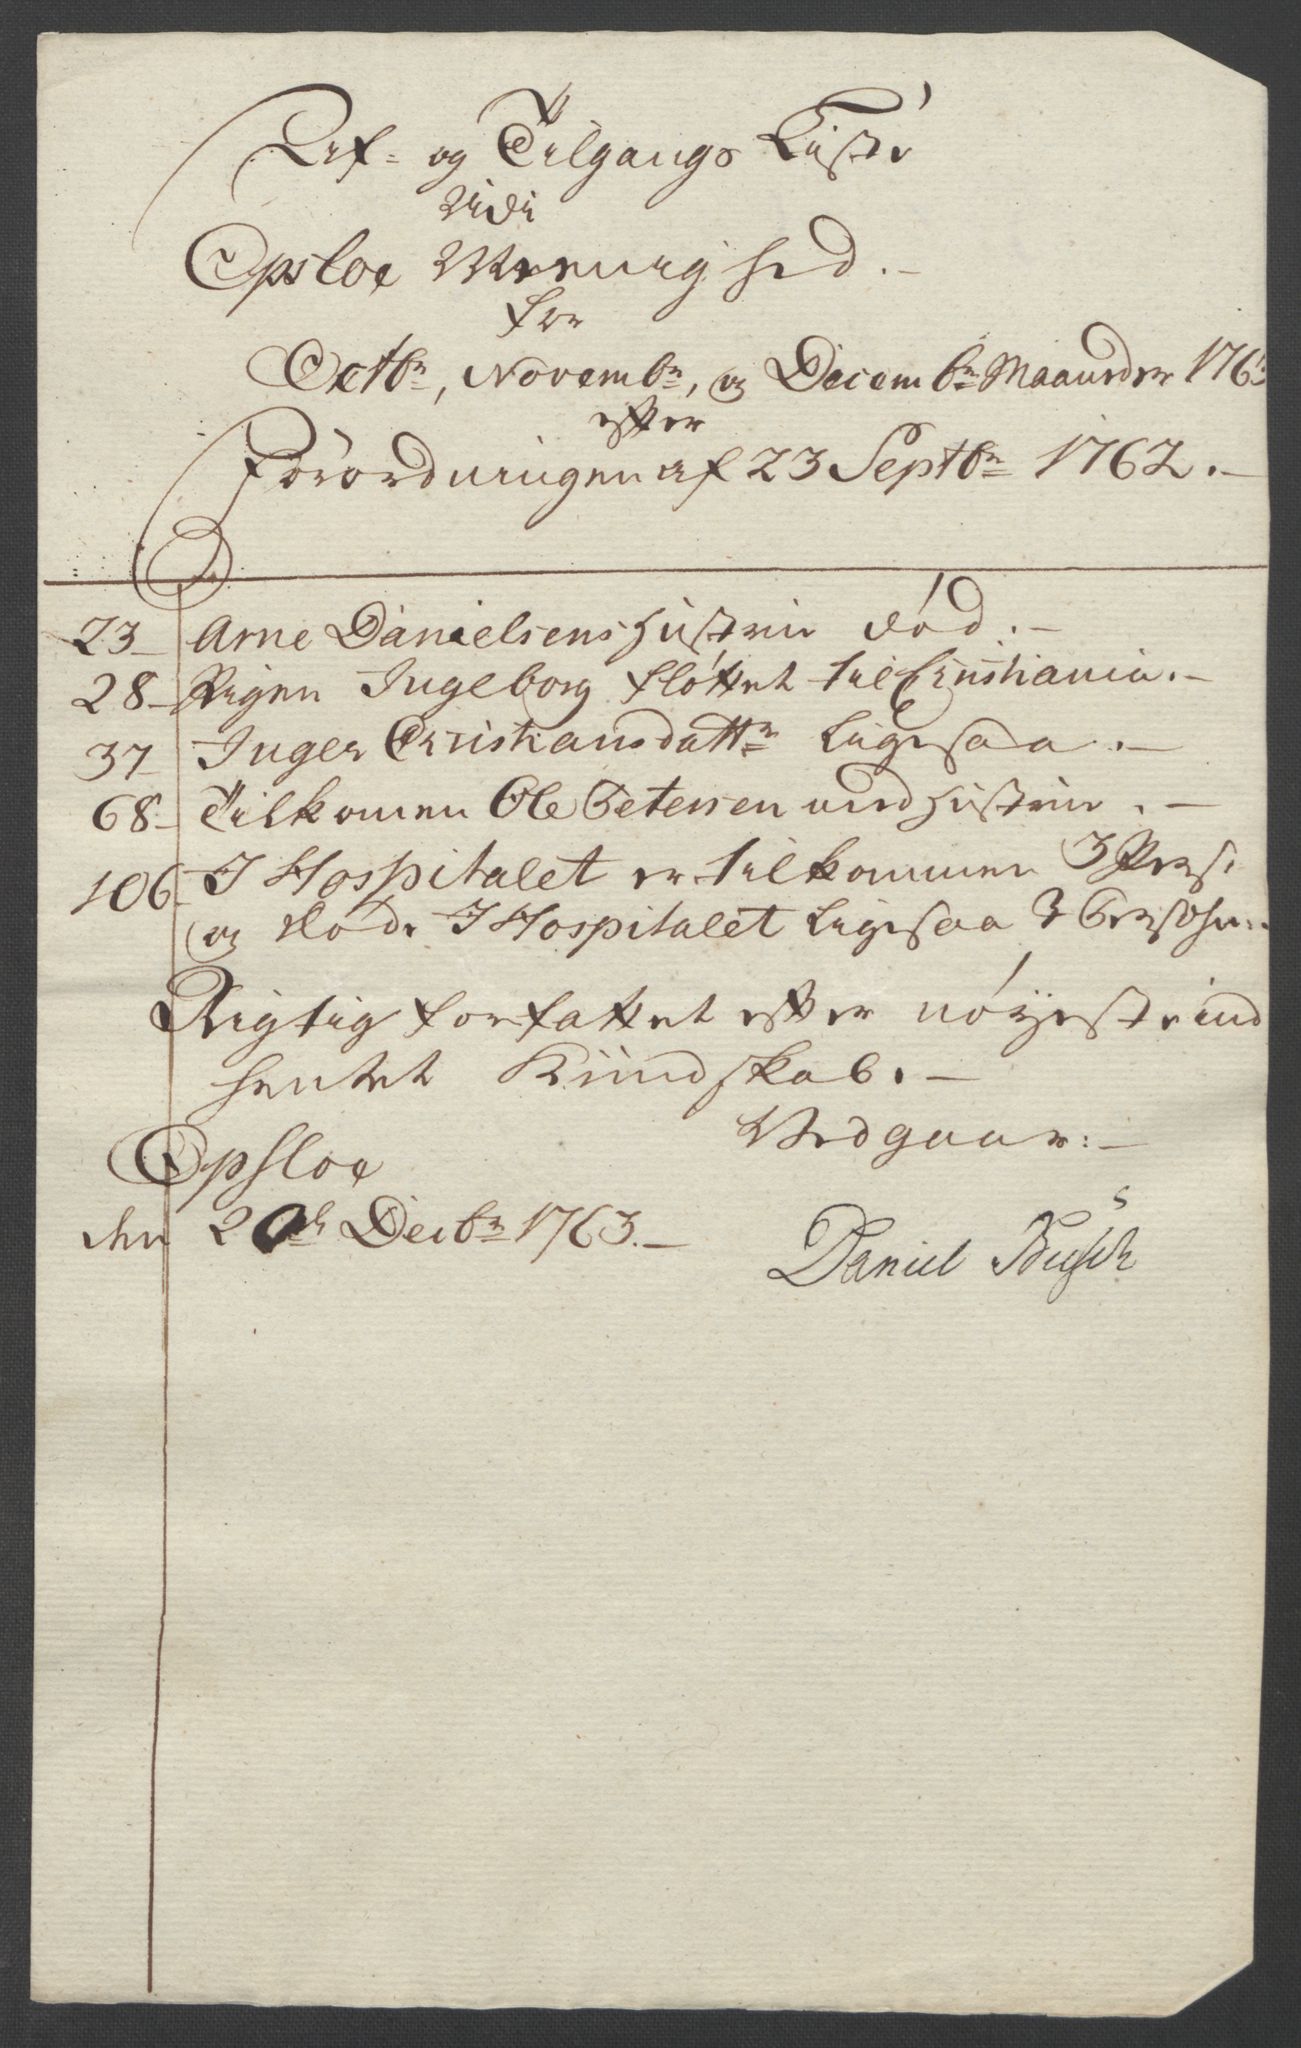 Af- og Tilgangs Liste
Udi
Opsloe Menighed.-
for
Octbr, Novembr, og Decembr Maaneder 1763
efter
Forordningen af 23 Septbr 1762.-
23 Arne Danielsens Hustrue død.-
28 Pigen Ingeborg fløttet til Christiania.-
37 Inger Christiansdattr Ligesaa.-
68 Tilkomen Ole Petersen med Hustrue.-
106 I Hospitalet er tilkommen 3 Pers:
og døde I Hospitalet Ligesaa 3 Persohn:
Rigtig forfattet efter nøyeste ind
hentet Kundskab.-
Vedgaar:-
Opsloe
den 20de Decbr 1763.-
Daniel Busch